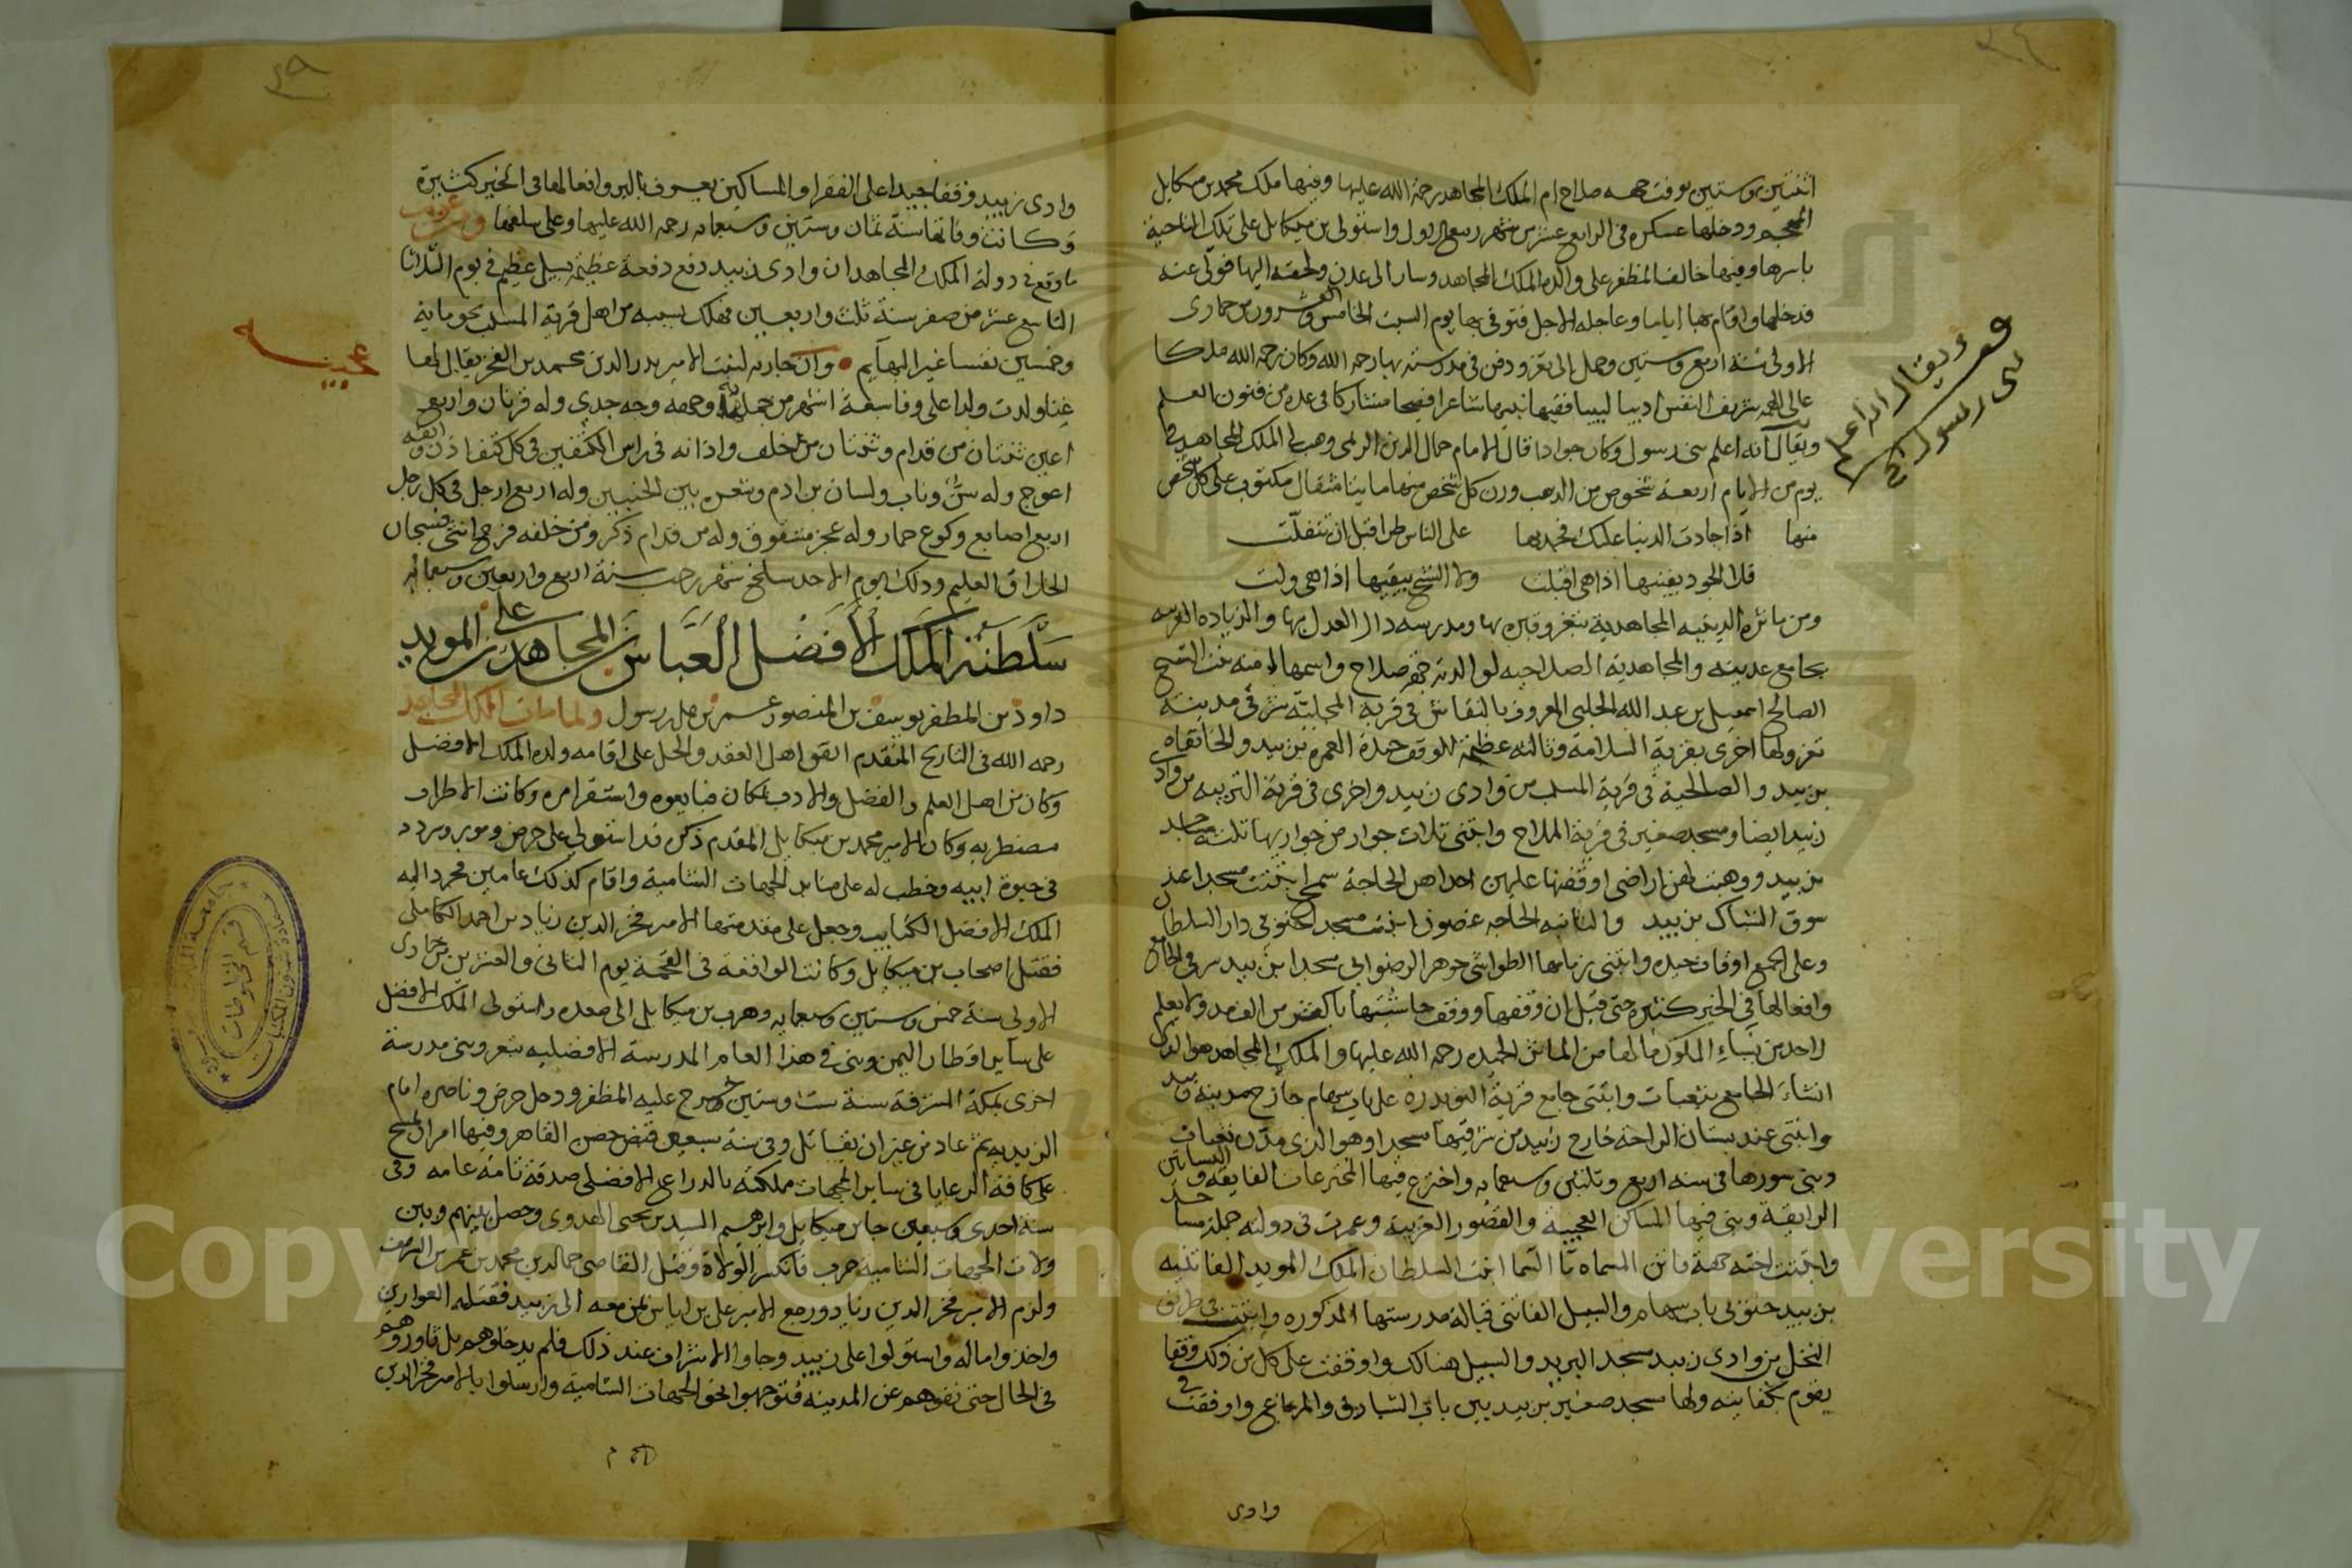 اثنتين وستين توفت جهه صلاح ام الملك المجاهد رحمة الله عليها وفيها ملك محمد بن ميكايل
المهجم ودخلها عسكره في الرابع عشر من شهر ربيع الاول واستولى بن ميكايل على تلك الناحية
باسرها وفيها خالف المظفر على والده الملك المجاهد وسار الى عدن ولحقه اليها فولى عنه
فدخلها واقام بها اياما وعاجله الاجل فتوفي بها يوم السبت الخامس والعشرون من جمادى
الاولى سنة اربع وستين وحمل الى تعز ودفن في مدرسته بها رحمه الله وكان رحمه الله ملكا
عالى الهمة شريف النفس اديبا لبيبا فقيها نبيها شاعرا فصيحا مشاركا في عده من فنون العلم
ويقال انه اعلم بنى رسول وكان جوادا قال الامام جمال الدين الريمى وهب لى الملك المجاهد في
يوم من الايام اربعة شخوص من الذهب وزن كل شخص منها مايتا مثقال مكتوب على كل شخص
منها اذا جادت الدنيا عليك فجد بها على الناس طرا قبل ان تتفلت
فلا الجود يفنيها اذا هى اقبلت ولا الشح يبقيها اذا هى ولت
ومن ماثره الدينيه المجاهدية بتعز وقبره بها ومدرسه دار العدل بها والزياده الغربيه
بجامع عدينه والمجاهدية الصلاحيه لوالدته جهة صلاح واسمها امنه بنت الشيخ
الصالح اسمعيل بن عبد الله الحلبي المعروف بالنقاش في قرية المحلية شرقي مدينة
تعز ولها اخرى بقرية السلامة وثالثه عظيمة الوقف جيدة العمره بزبيد والخانقاه
بزبيد والصالحية في قرية المسلب من وادى زبيد واخرى في قرية التريبه من وادى
زبيد ايضا ومسجد صغير في قرية الملاح وابتنى ثلاث جوار من جواريها ثلثه مساجد
بزبيد ووهبت لهن اراضى اوقفنها عليهن احداهن الحاجة سمح ابتنت مسجدا عند
سوق الشباك بزبيد والثانيه الحاجه غصون ابتنت مسجدا جنوبى دار السلطان
وعلى الجميع اوقاف جيده وابتنى زمامها الطواشى جوهر الرضوانى مسجدا بزبيد شرقي الجامع
وافعالها في الخير كثيره حتى قيل ان وقفها ووقف حاشيتها باكثر من الف مد ولا يعلم
لاحد من نساء الملوك ما لها من الماثر الجيده رحمه الله عليها والملك المجاهد هو الذى
انشاء الجامع بثعبات وابتنى جامع قرية النويدره على باب سهام خارج مدينة زبيد
وابتنى عند بستان الراحة خارج زبيد من شرقيها مسجدا وهو الذى مدن ثعبات
وبنى سورها في سنه اربع وثلثين وسبعمايه واخترع فيها المخترعات الفايقه والبساتين
الرايقة وبنى فيها المساكن العجيبة والقصور الغريبة وعمرت في دولته جملة مساجد
وابتنت اخته جهة فاتن المسماه ماء السما ابنت السلطان الملك المويد الفاتنيه
بزبيد جنوبى باب سهام والسبيل الفاتنى قبالة مدرستها المذكوره وابتنت في طريق
النخل من وادى زبيد مسجد البريد والسبيل هنالك واوقفت على كل من ذلك وقفا
يقوم بكفايته ولها مسجد صغير بزبيد بين باب الشبارق والمرباع واوقفت في
وادى
ويقال انه اعلم
بنى رسول الخ
وادى زبيد وقفا جيدا على الفقرا والمساكين يعرف بالبر وافعالها في الخير كثيرة
وكانت وفاتها سنة ثمان وستين وسبعمايه رحمه الله عليها وعلى سلفها ومن غريب
ما وقع في دولة الملك المجاهد ان وادى زبيد دفع دفعة عظيمة بسيل عظيم في يوم الثلاثا
التاسع عشر من صفر سنة ثلث واربعين فهلك بسببه من اهل قرية المسلب نحو ماية
وخمسين نفسا غير البهايم وان جاريه لبنت الامير بدر الدين محمد بن الفخر يقال لها
غنا ولدت ولدا على وفا سبعة اشهر من حملها به وجهه وجه جدى وله قرنان واربع
اعين ثنتان من قدام وثنتان من خلف واذانه في راس الكتفين في كل كتف اذن وانفه
اعوج وله سن وناب ولسان بن ادم وشعر بين الجنبين وله اربع ارجل في كل رجل
اربع اصابع وكوع حمار وله عجز مشقوق وله من قدام ذكر ومن خلفه فرج انثى فسبحان
الخلاق العليم وذلك يوم الاحد سلخ شهر رجب سنة اربع واربعين وسبعمايه
سلطنة الملك الأفضل العباس بن المجاهد على بن المويد
داود بن المظفر يوسف بن المنصور عمر بن على بن رسول ولما مات الملك المجاهد
رحمه الله في التاريخ المتقدم اتفق اهل العقد والحل على اقامه ولده الملك الافضل
وكان من اهل العلم والفضل والادب بمكان فبايعوه واستقر امره وكانت الاطراف
مضطربه وكان الامير محمد بن ميكايل المقدم ذكره قد استولى على حرض ومور وسردد
في حيوة ابيه وخطب له على منابر الجهات الشامية واقام كذلك عامين فجرد اليه
الملك الافضل الكتايب وجعل على مقدمتها الامير فخر الدين زياد بن احمد الكاملى
فقتل اصحاب بن ميكايل وكانت الواقعة في القحمة يوم الثانى والعشرين من جمادى
الاولى سنة خمس وستين وسبعمايه وهرب بن ميكايل الى صعده واستولى الملك الافضل
على ساير اقطار اليمن وبنى في هذا العام المدرسة الافضليه بتعز وبنى مدرسة
اخرى بمكة المشرفة سنة ست وستين وخرج عليه المظفر ودخل حرض وناصره امام
الزيديه ثم عاد من غير ان يقاتل وفي سنة سبعين قبض حصن القاهر وفيها امر ان يمسح
على كافة الرعايا في ساير الجهات مملكته بالذراع الافضلى صدقة تامة عامه وفي
سنة احدى وسبعين جا بن ميكايل وابرهيم السيد بن يحيى الهدوى وحصل بينهم وبين
ولات الجهات الشامية حرب فانكسر الولاة وقتل القاضى جمال الدين محمد بن عمر بن الشريف
ولزم الامير فخر الدين زياد ورجع الامير على بن اياس بمن معه الى زبيد فقتله العوارين
واخذوا ماله واستولوا على زبيد وجاوا الاشراف عند ذلك فلم يدخلوهم بل قاوروهم
في الحال حتى نفوهم عن المدينه فتوجهوا نحو الجهات الشامية وارسلوا بالامير فخر الدين
عجيبه
جامعة الملك سعود
قسم المخطوطات
Copyright © King Saud University